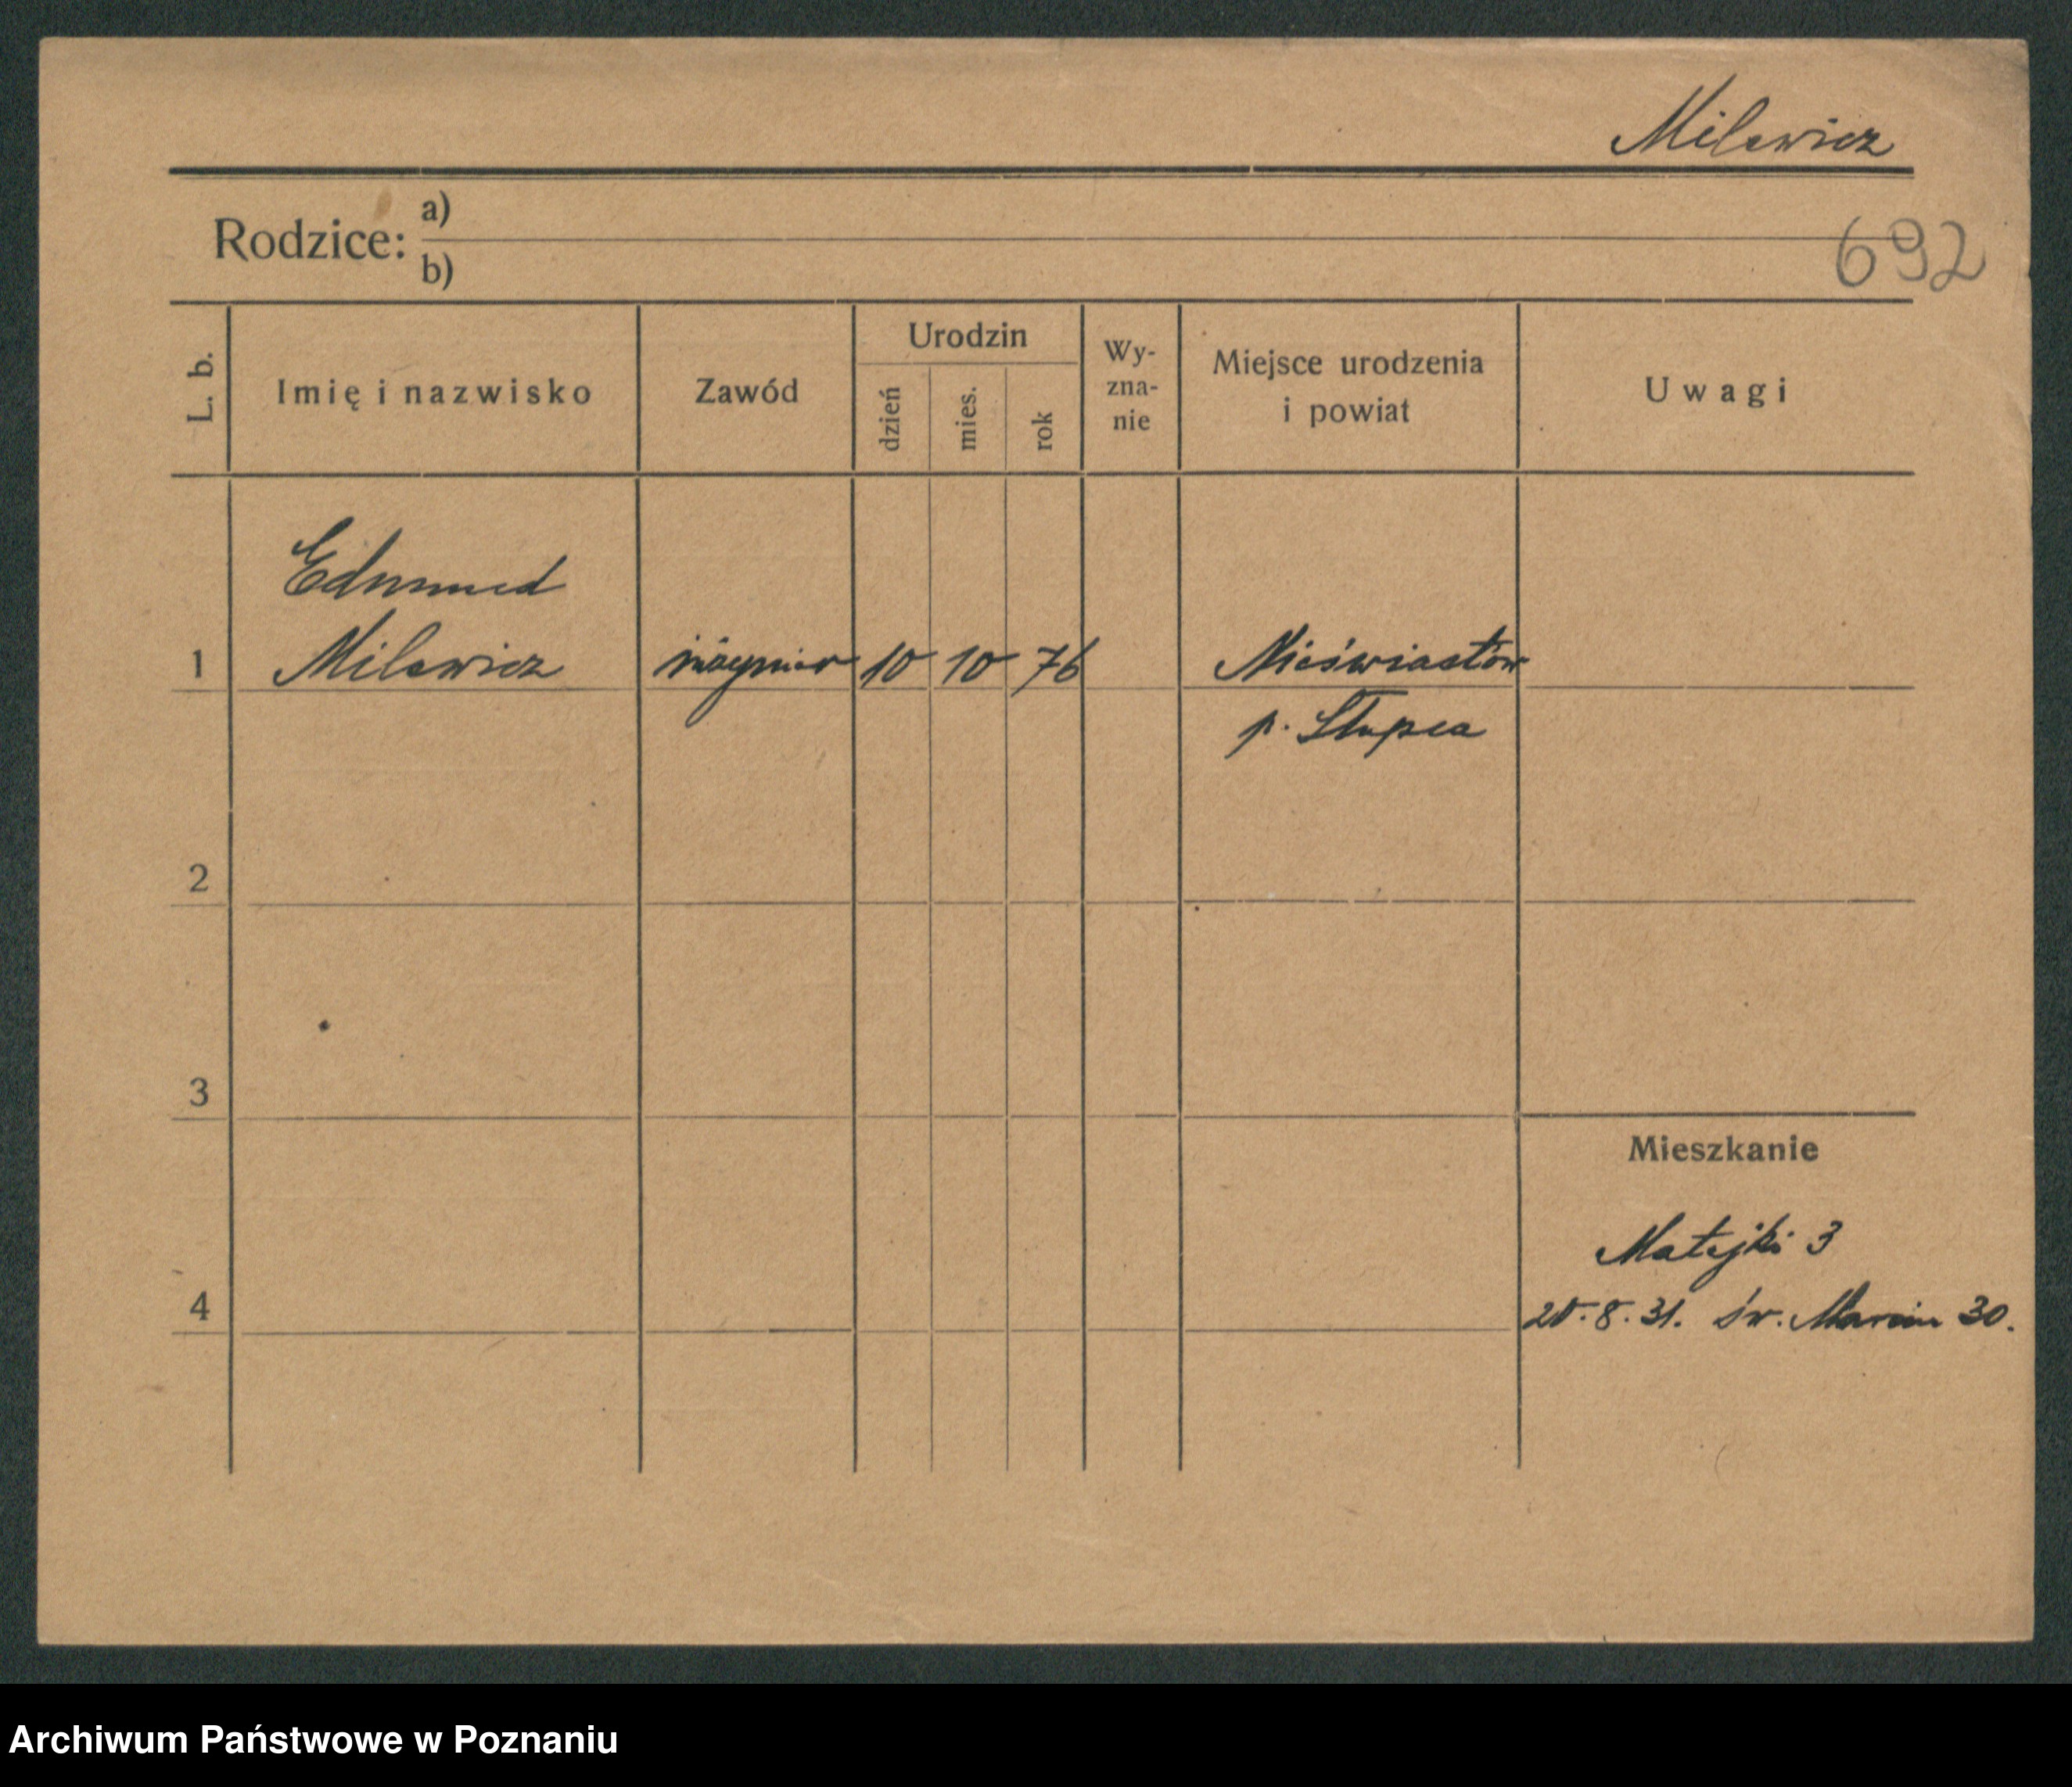 Milewicz
Rodzice: a)
b)
692
L. b.
Imię i nazwisko
Zawód
Urodzin
dzień
mies.
rok
Wy-
zna-
nie
Miejsce urodzenia
i powiat
Uwagi
Edmund
1 Milewicz inżynier 10 10 76 Nieświastów
p. Słupca
2
3
Mieszkanie
Matejki 3
4
20.8.31. św. Marcin 30.
Archiwum Państwowe w Poznaniu